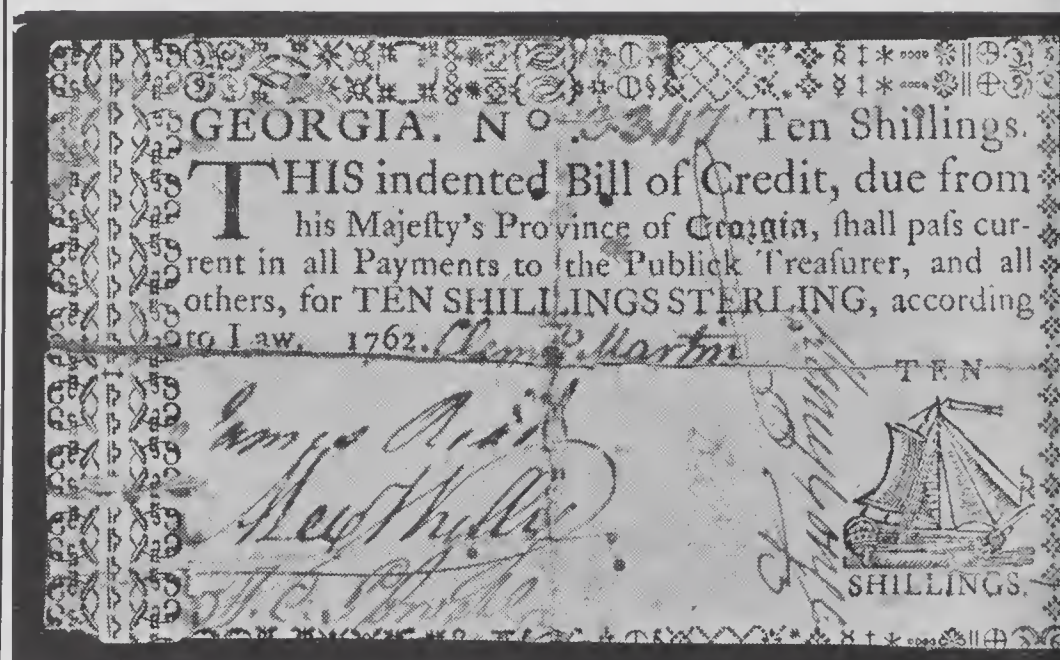 GEORGIA. No Ten Shillings.
THIS indented Bill of Credit, due from
his Majeſty's Province of Georgia, ſhall paſs cur-
rent in all Payments to the Publick Treaſurer, and all
others, for TEN SHILLINGS STERLING, according
to Law. 1762. Clemt Martin
James Read
Alex Wylly
TEN
SHILLINGS.